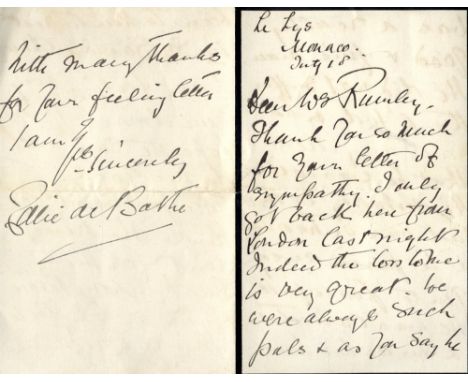 With many thanks
for your feeling letter
I am
Yrs Sincerely
Lillie de Bathe
Le Lys
Monaco.
July 18
Dear Mr Rumley.
Thank you so much
for your letter of
sympathy. I only
got back here from
London last night
Indeed the loss to me
is very great. We
were always such
pals & as you say he